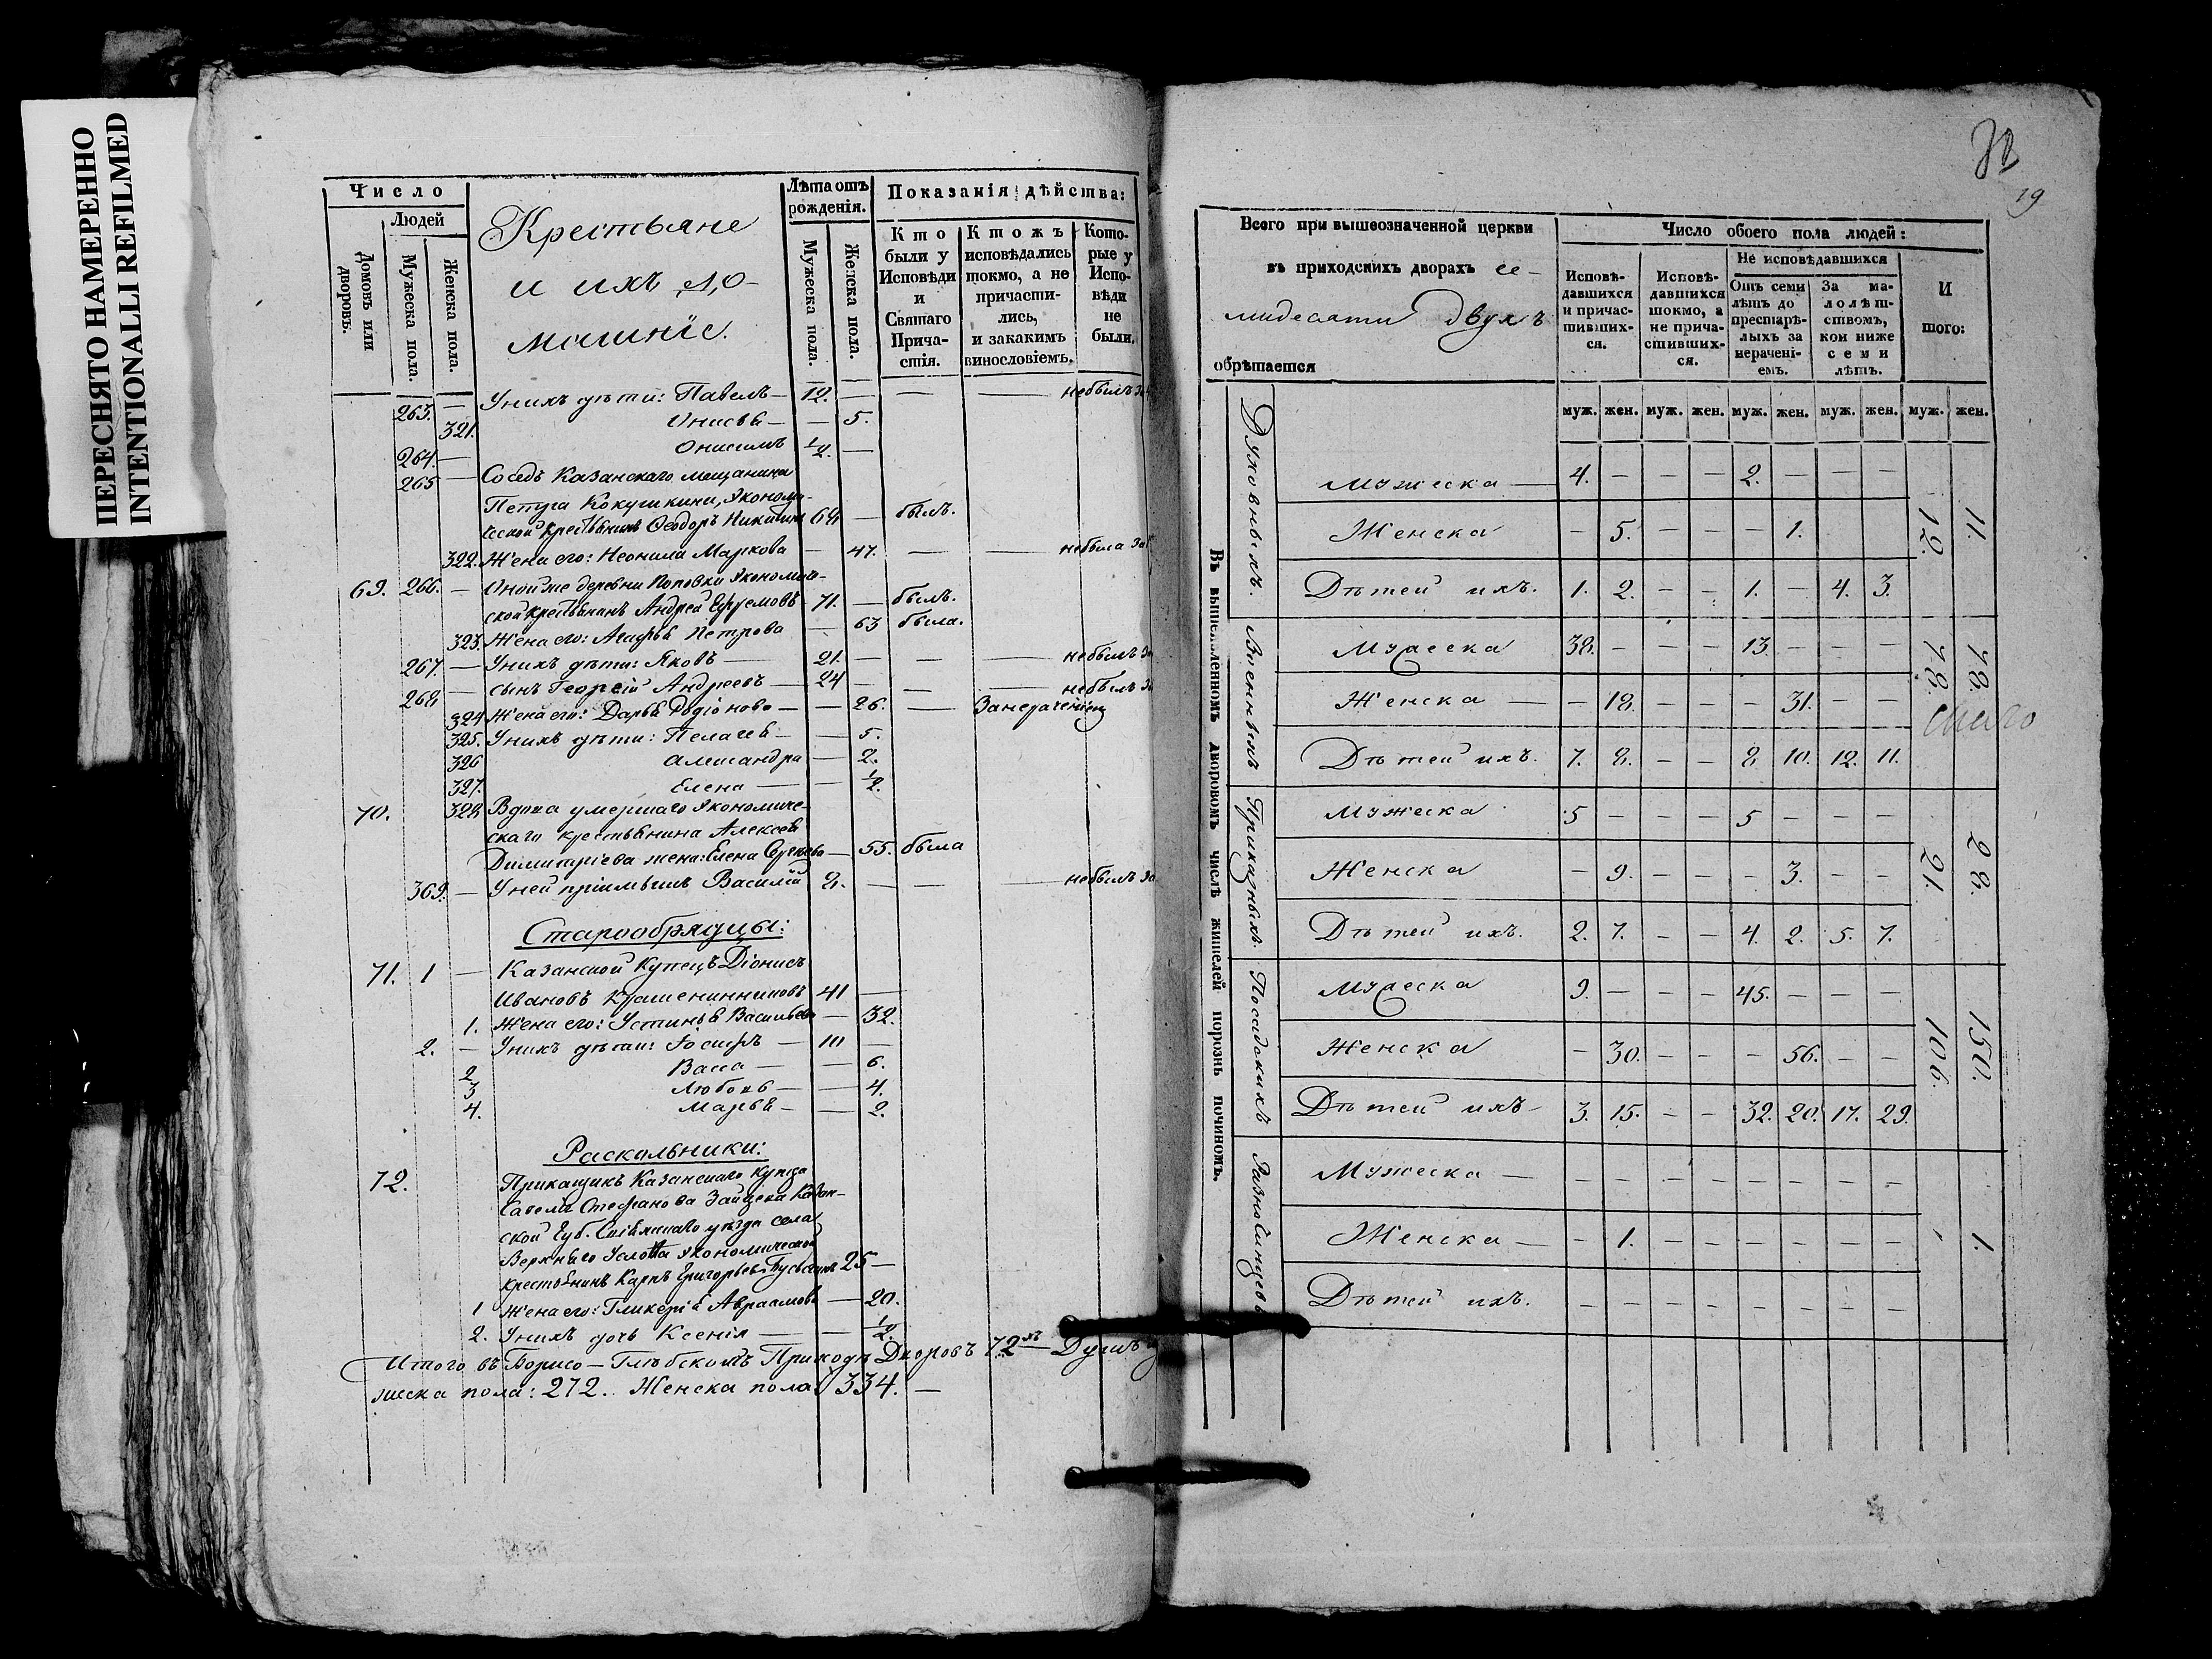 ПЕРЕСНЯТО НАМЕРЕННО
INTENTIONALLI REFILMED
Число
Людей
Домовъ или дворовъ.
Мужеска пола.
Женска пола.
Крестьяне
и ихъ до-
машніе.
Лѣта отъ рожденія.
Мужеска пола.
Женска пола.
Показанія дѣйства:
Кто были у Исповѣди и Святаго Причастія.
Ктожъ исповѣдались токмо, а не причастились, и закакимъ винословіемъ.
Которые у Исповѣди не были.
263. — Унихъ дѣти: Павелъ — 12. — — — небылъ за
321. Анисья — — 5.
264. — Онисимъ 1/2. —
265 — Соседъ Казанскаго мещанина
Петра Кокушкина, Экономи-
ческой крестьянинъ Ѳеодоръ Никитинъ 64 — былъ.
322. Жена его: Неонила Маркова — 47. — — небыла за
69. 266. — Оной же деревни Поповки Экономиче-
ской крестьянинъ Андрей Ефремовъ 71. — былъ.
323. Жена его: Агафья Петрова — 63 была.
267. — Унихъ дѣти: Яковъ — 21. — — — небылъ за
268 — сынъ Георгій Андреевъ — 24 — — — небылъ за
324 Жена его: Дарья Родіонова — — 26. — Занераченіем
325. Унихъ дѣти: Пелагея — — 5.
326 Александра — 2.
327. Елена — — 1/2.
70. 328. Вдова умершаго Экономиче-
скаго крестьянина Алексея
Димитріева жена: Елена Сергеева — 55. была
369. — Уней пріимышъ Василій 8. — — — небылъ за
Старообрядцы:
71. 1 — Казанской Купецъ Діонисъ
Ивановъ Крашенинниковъ 41 —
1. Жена его: Устинья Васильева — 32.
2. — Унихъ дѣти: Іосифъ — 10 —
2 Васса — — 6.
3 Любовь — — 4.
4. Марья — — 2.
Раскольники:
72. Прикащикъ Казанскаго купца
Савела Стефанова Зайцева Казан-
ской Губ. Свіяжскаго уѣзда села
Верхняго Услона Экономической
крестьянинъ Карпъ Григорьевъ 25 —
1 Жена его: Гликерія Авраамова — 20.
2. Унихъ дочь Ксенія — — 1/2.
Итого въ Борисо-Глѣбскомъ Приходѣ Дворовъ 72хъ — Душъ му
жеска пола: 272. Женска пола 334. —
19
Всего при вышеозначенной церкви
въ приходскихъ дворахъ се-
мидесяти двухъ
обрѣтается
Число обоего пола людей:
Исповѣдавшихся и причастившихся.
Исповѣдавшихся токмо, а не причастившихся.
Не исповѣдавшихся
Отъ семи лѣтъ до престарѣлыхъ за нераченіемъ.
За малолѣтствомъ, кои ниже семи лѣтъ.
Итого:
муж. жен. муж. жен. муж. жен. муж. жен. муж. жен.
Въ вышеявленномъ дворовомъ числѣ жителей порознь починомъ.
Духовныхъ.
Мужеска — 4. — — — 2. — — —
Женска — 5. — — — 1. 12. 11.
Дѣтей ихъ. 1. 2. — — 1. — 4. 3.
Военныхъ
Мужеска 38. — — — 13. — — —
Женска — 18. — — — 31. — — 78. 78.
Дѣтей ихъ. 7. 8. — — 8 10. 12. 11.
Приказныхъ.
Мужеска 5 — — — 5 — — —
Женска — 9. — — — 3. — — 21. 28.
Дѣтей ихъ. 2. 7. — — 4. 2. 5. 7.
Посадскихъ
Мужеска 9. — — — 45. — — —
Женска — 30. — — — 56. — — 106. 150.
Дѣтей ихъ — 3. 15. — — 32. 20. 17. 29.
Разночинцевъ
Мужеска — — — — — — — — —
Женска — — 1. — — — — — — - 1.
Дѣтей ихъ. — — — — — — — —